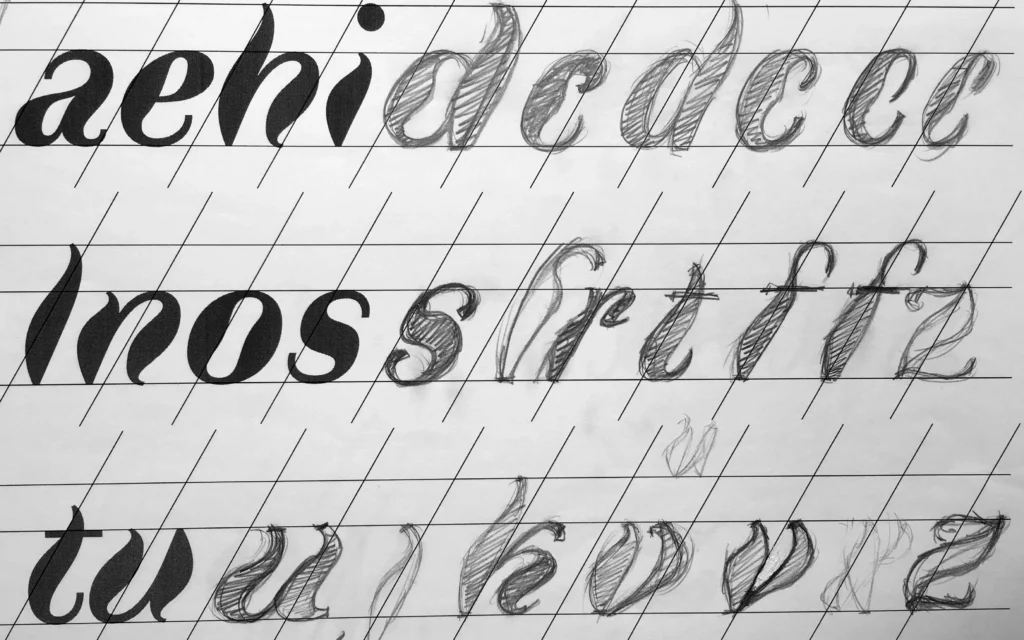 aehidcdccc
lnossrtffz
tuukovvz